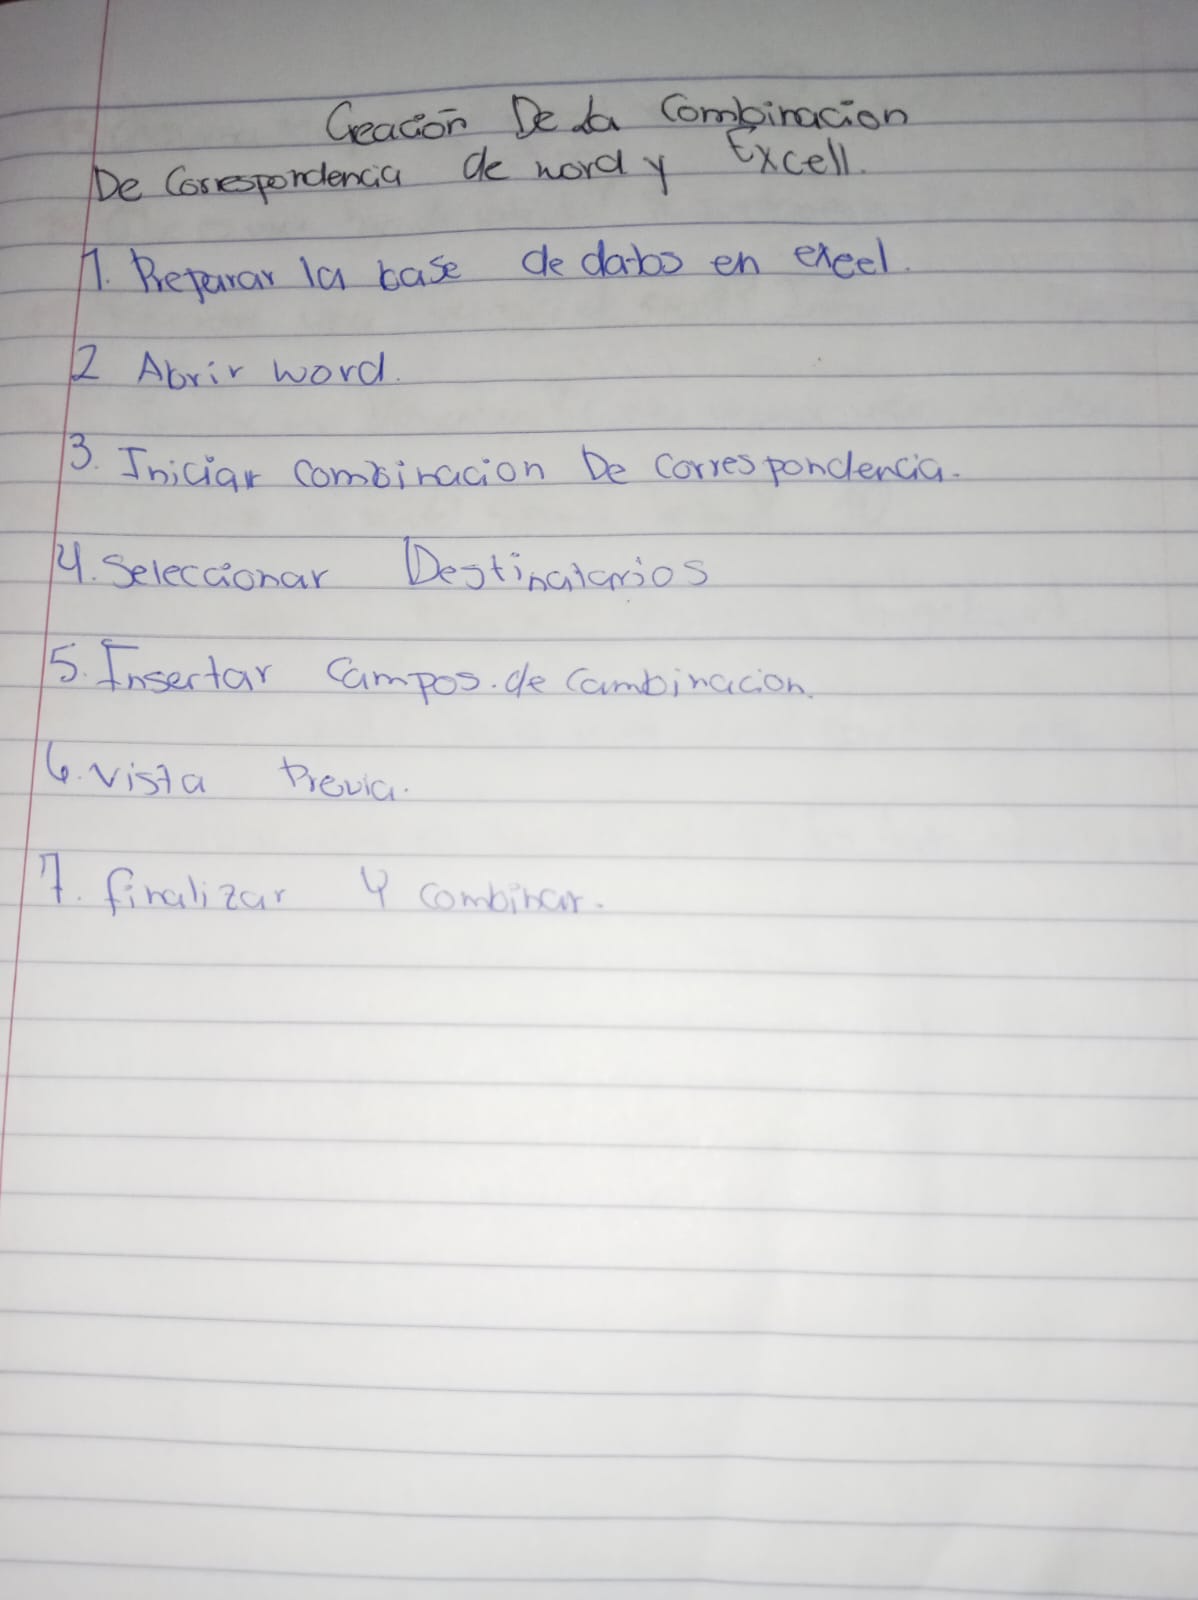 Creación De La Combinacion
De Correspondencia de word y Excell.
1. Preparar la base de datos en excel.
2 Abrir word.
3. Iniciar combinacion De correspondencia.
4. Seleccionar Destinatarios
5. Insertar Campos. de Cambinacion.
6. vista Previa.
7. finalizar y combinar.